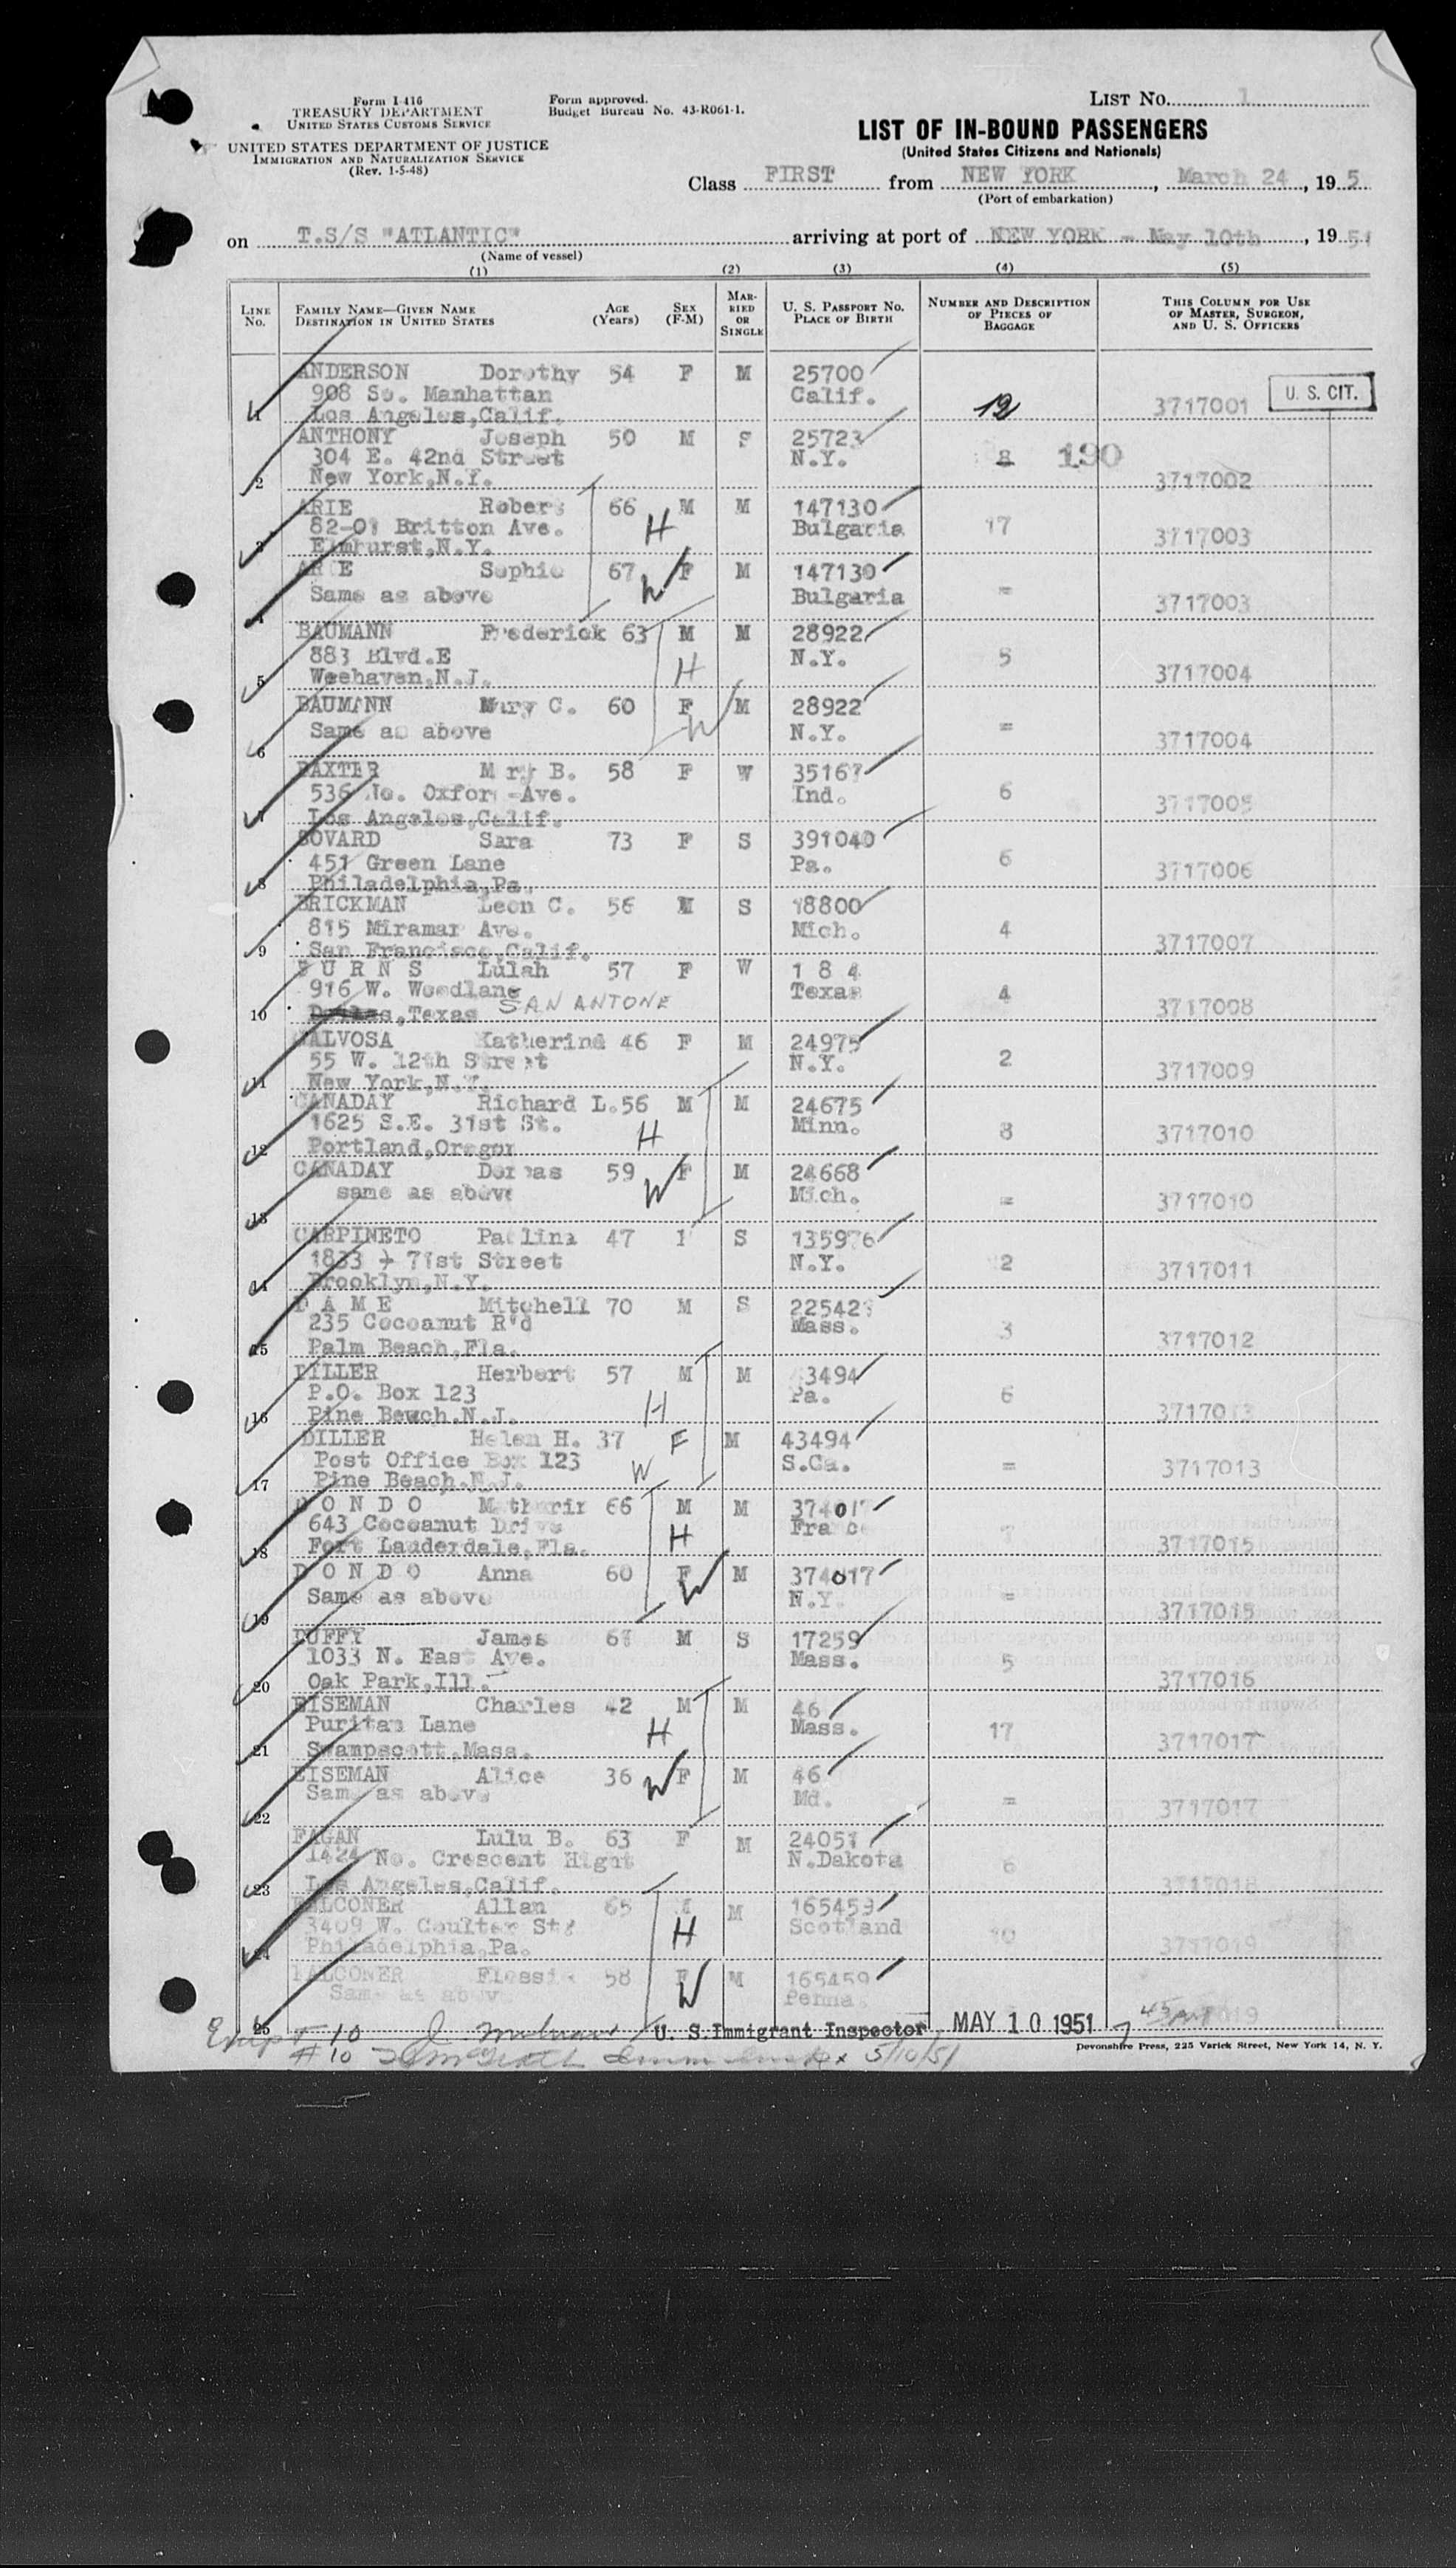 Form I-416
TREASURY DEPARTMENT
UNITED STATES CUSTOMS SERVICE
UNITED STATES DEPARTMENT OF JUSTICE
IMMIGRATION AND NATURALIZATION SERVICE
(Rev. 1-5-48)
Form approved.
Budget Bureau No. 43-R061-1.
LIST No. 1
LIST OF IN-BOUND PASSENGERS
(United States Citizens and Nationals)
Class FIRST from NEW YORK, March 24, 195
(Port of embarkation)
on T.S/S "ATLANTIC" arriving at port of NEW YORK - May 10th, 1951
(Name of vessel)
(1) (2) (3) (4) (5)
LINE No. FAMILY NAME—GIVEN NAME DESTINATION IN UNITED STATES AGE (Years) SEX (F-M) MARRIED OR SINGLE U. S. PASSPORT No. PLACE OF BIRTH NUMBER AND DESCRIPTION OF PIECES OF BAGGAGE THIS COLUMN FOR USE OF MASTER, SURGEON, AND U. S. OFFICERS
ANDERSON Dorothy 54 F M 25700
908 So. Manhattan Calif. U. S. CIT.
1 Los Angeles,Calif. 12 3717001
ANTHONY Joseph 50 M S 25723
304 E. 42nd Street N.Y. 8 190
2 New York,N.Y. 3717002
ARIE Robert 66 M M 147130
82-01 Britton Ave. H Bulgaria 17 3717003
3 Elmhurst,N.Y.
ARIE Sophie 67 F M 147130
Same as above W Bulgaria = 3717003
4
BAUMANN Frederick 63 M M 28922
883 Blvd.E H N.Y. 5
5 Weehaven,N.J. 3717004
BAUMANN Mary C. 60 F M 28922
Same as above W N.Y. =
6 3717004
BAXTER Mary B. 58 F W 35167
536 No. Oxford Ave. Ind. 6 3717005
7 Los Angeles,Calif.
BOVARD Sara 73 F S 391040
451 Green Lane Pa. 6 3717006
8 Philadelphia,Pa.
BRICKMAN Leon C. 56 M S 18800
815 Miramar Ave. Mich. 4
9 San Francisco,Calif. 3717007
BURNS Lulah 57 F W 184
916 W. Woodlane Texas 4
10 Dallas,Texas SAN ANTONE 3717008
Katherine 46 F M 24975
55 W. 12th Street N.Y. 2
11 New York,N.Y. 3717009
CANADAY Richard L. 56 M M 24675
1625 S.E. 31st St. H Minn. 8 3717010
12 Portland,Oregon
CANADAY Dorcas 59 F M 24668
same as above W Mich. = 3717010
13
CARPINETO Paulina 47 S 135976
1833 - 71st Street N.Y. 2 3717011
14 Brooklyn,N.Y.
DAME Mitchell 70 M S 22542
235 Cocoanut R'd Mass. 3
15 Palm Beach,Fla. 3717012
DILLER Herbert 57 M M 43494
P.O. Box 123 H Pa. 6
16 Pine Beach.N.J. 3717013
DILLER Helen H. 37 F M 43494
Post Office Box 123 W S.Ca. = 3717013
17 Pine Beach.N.J.
DONDO Mathurin 66 M M 374017
643 Cocoanut Drive H France 7
18 Fort Lauderdale,Fla. 3717015
DONDO Anna 60 F M 374017
Same as above W N.Y. =
19 3717015
DUFFY James M S 17259
1033 N. East Ave. Mass. 5
20 Oak Park,Ill. 3717016
EISEMAN Charles 42 M M 46
Puritan Lane H Mass. 17
21 Swampscott,Mass. 3717017
EISEMAN Alice 36 F M 46
Same as above W Md. =
22 3717017
FAGAN Lulu B. 63 F M 24051
1424 No. Crescent Hight N.Dakota 6
23 Los Angeles,Calif. 3717018
FALCONER Allan 65 M M 165459
3409 W. Coulter St. H Scotland 10
24 Philadelphia,Pa. 3717019
FALCONER Flossie 58 F M 165459
Same as above W Penna.
25 U. S. Immigrant Inspector MAY 10 1951
Except # 10
# 10 5/10/51
Devonshire Press, 225 Varick Street, New York 14, N. Y.